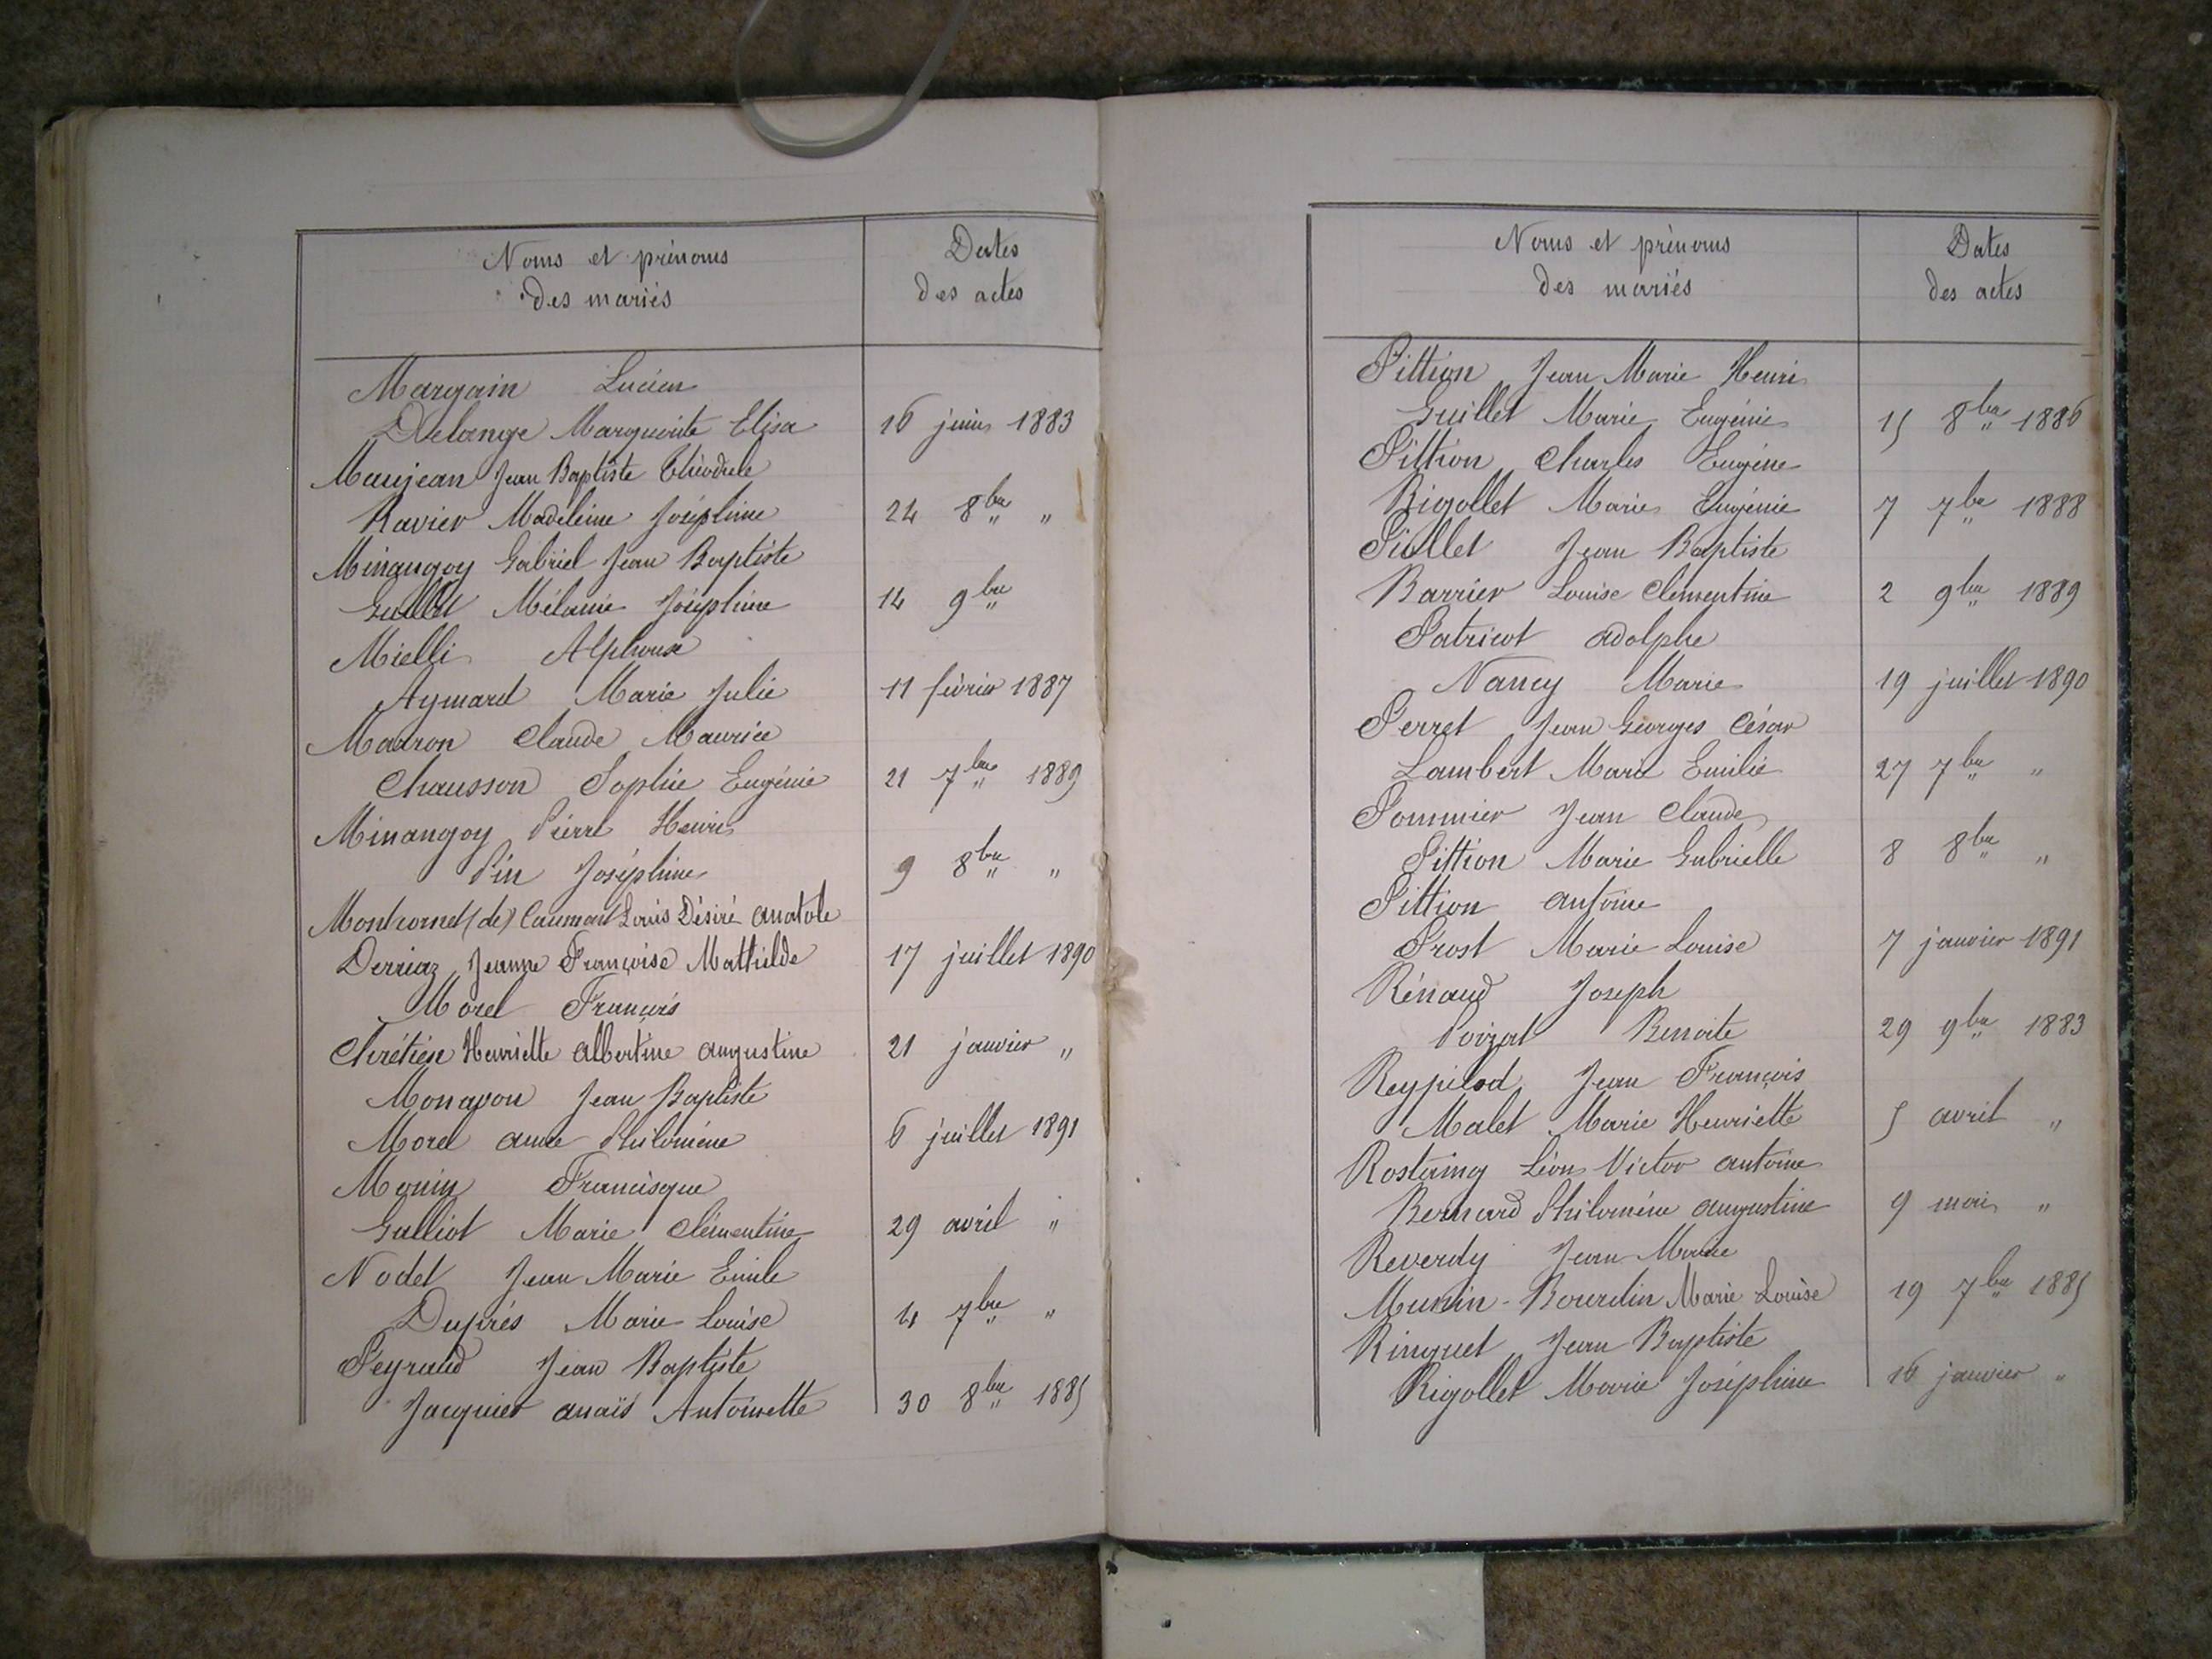 Noms et prénoms
des mariés
Dates
des actes
Margain Lucien
Delange Marguerite Elisa 16 juin 1883
Maujean Jean Baptiste Théodule
Ravier Madeleine Joséphine 24 8bre "
Minangoy Gabriel Jean Baptiste
Guillet Mélanie Joséphine 14 9bre
Mielli Alphonse
Aymard Marie Julie 11 février 1887
Marron Claude Maurice
Chausson Sophie Eugénie 21 7bre 1889
Minangoy Pierre Henri
Pin Joséphine 9 8bre "
Montcornet (de) Caumont Louis Désiré Anatole
Derriaz Jeanne Françoise Mathilde 17 juillet 1890
Morel François
Chrétien Henriette Albertine Augustine 21 janvier "
Monavon Jean Baptiste
Morel Anne Philomène 6 juillet 1891
Monin Francisque
Galliot Marie Clémentine 29 avril "
Nodet Jean Marie Emile
Duprés Marie Louise 4 7bre "
Peyraud Jean Baptiste
Jacquier Anaïs Antoinette 30 8bre 1885
Noms et prénoms
des mariés
Dates
des actes
Pittion Jean Marie Henri
Guillet Marie Eugénie 15 8bre 1886
Pittion Charles Eugène
Rigollet Marie Eugénie 7 7bre 1888
Piollet Jean Baptiste
Barrier Louise Clementine 2 9bre 1889
Patricot Adolphe
Nancy Marie 19 juillet 1890
Perret Jean Georges César
Lambert Marie Emilie 27 7bre "
Pommier Jean Claude
Pittion Marie Gabrielle 8 8bre "
Pittion Antoine
Prost Marie Louise 7 janvier 1891
Rénaud Joseph
Poizat Benoite 29 9bre 1883
Reypelod Jean François
Malet Marie Henriette 5 avril "
Rostaing Léon Victor Antoine
Bernard Philomène Augustine 9 "
Reverdy Jean Marie
Munin-Bourdin Marie Louise 19 7bre 1885
Ringuet Jean Baptiste
Rigollet Marie Joséphine 16 janvier "